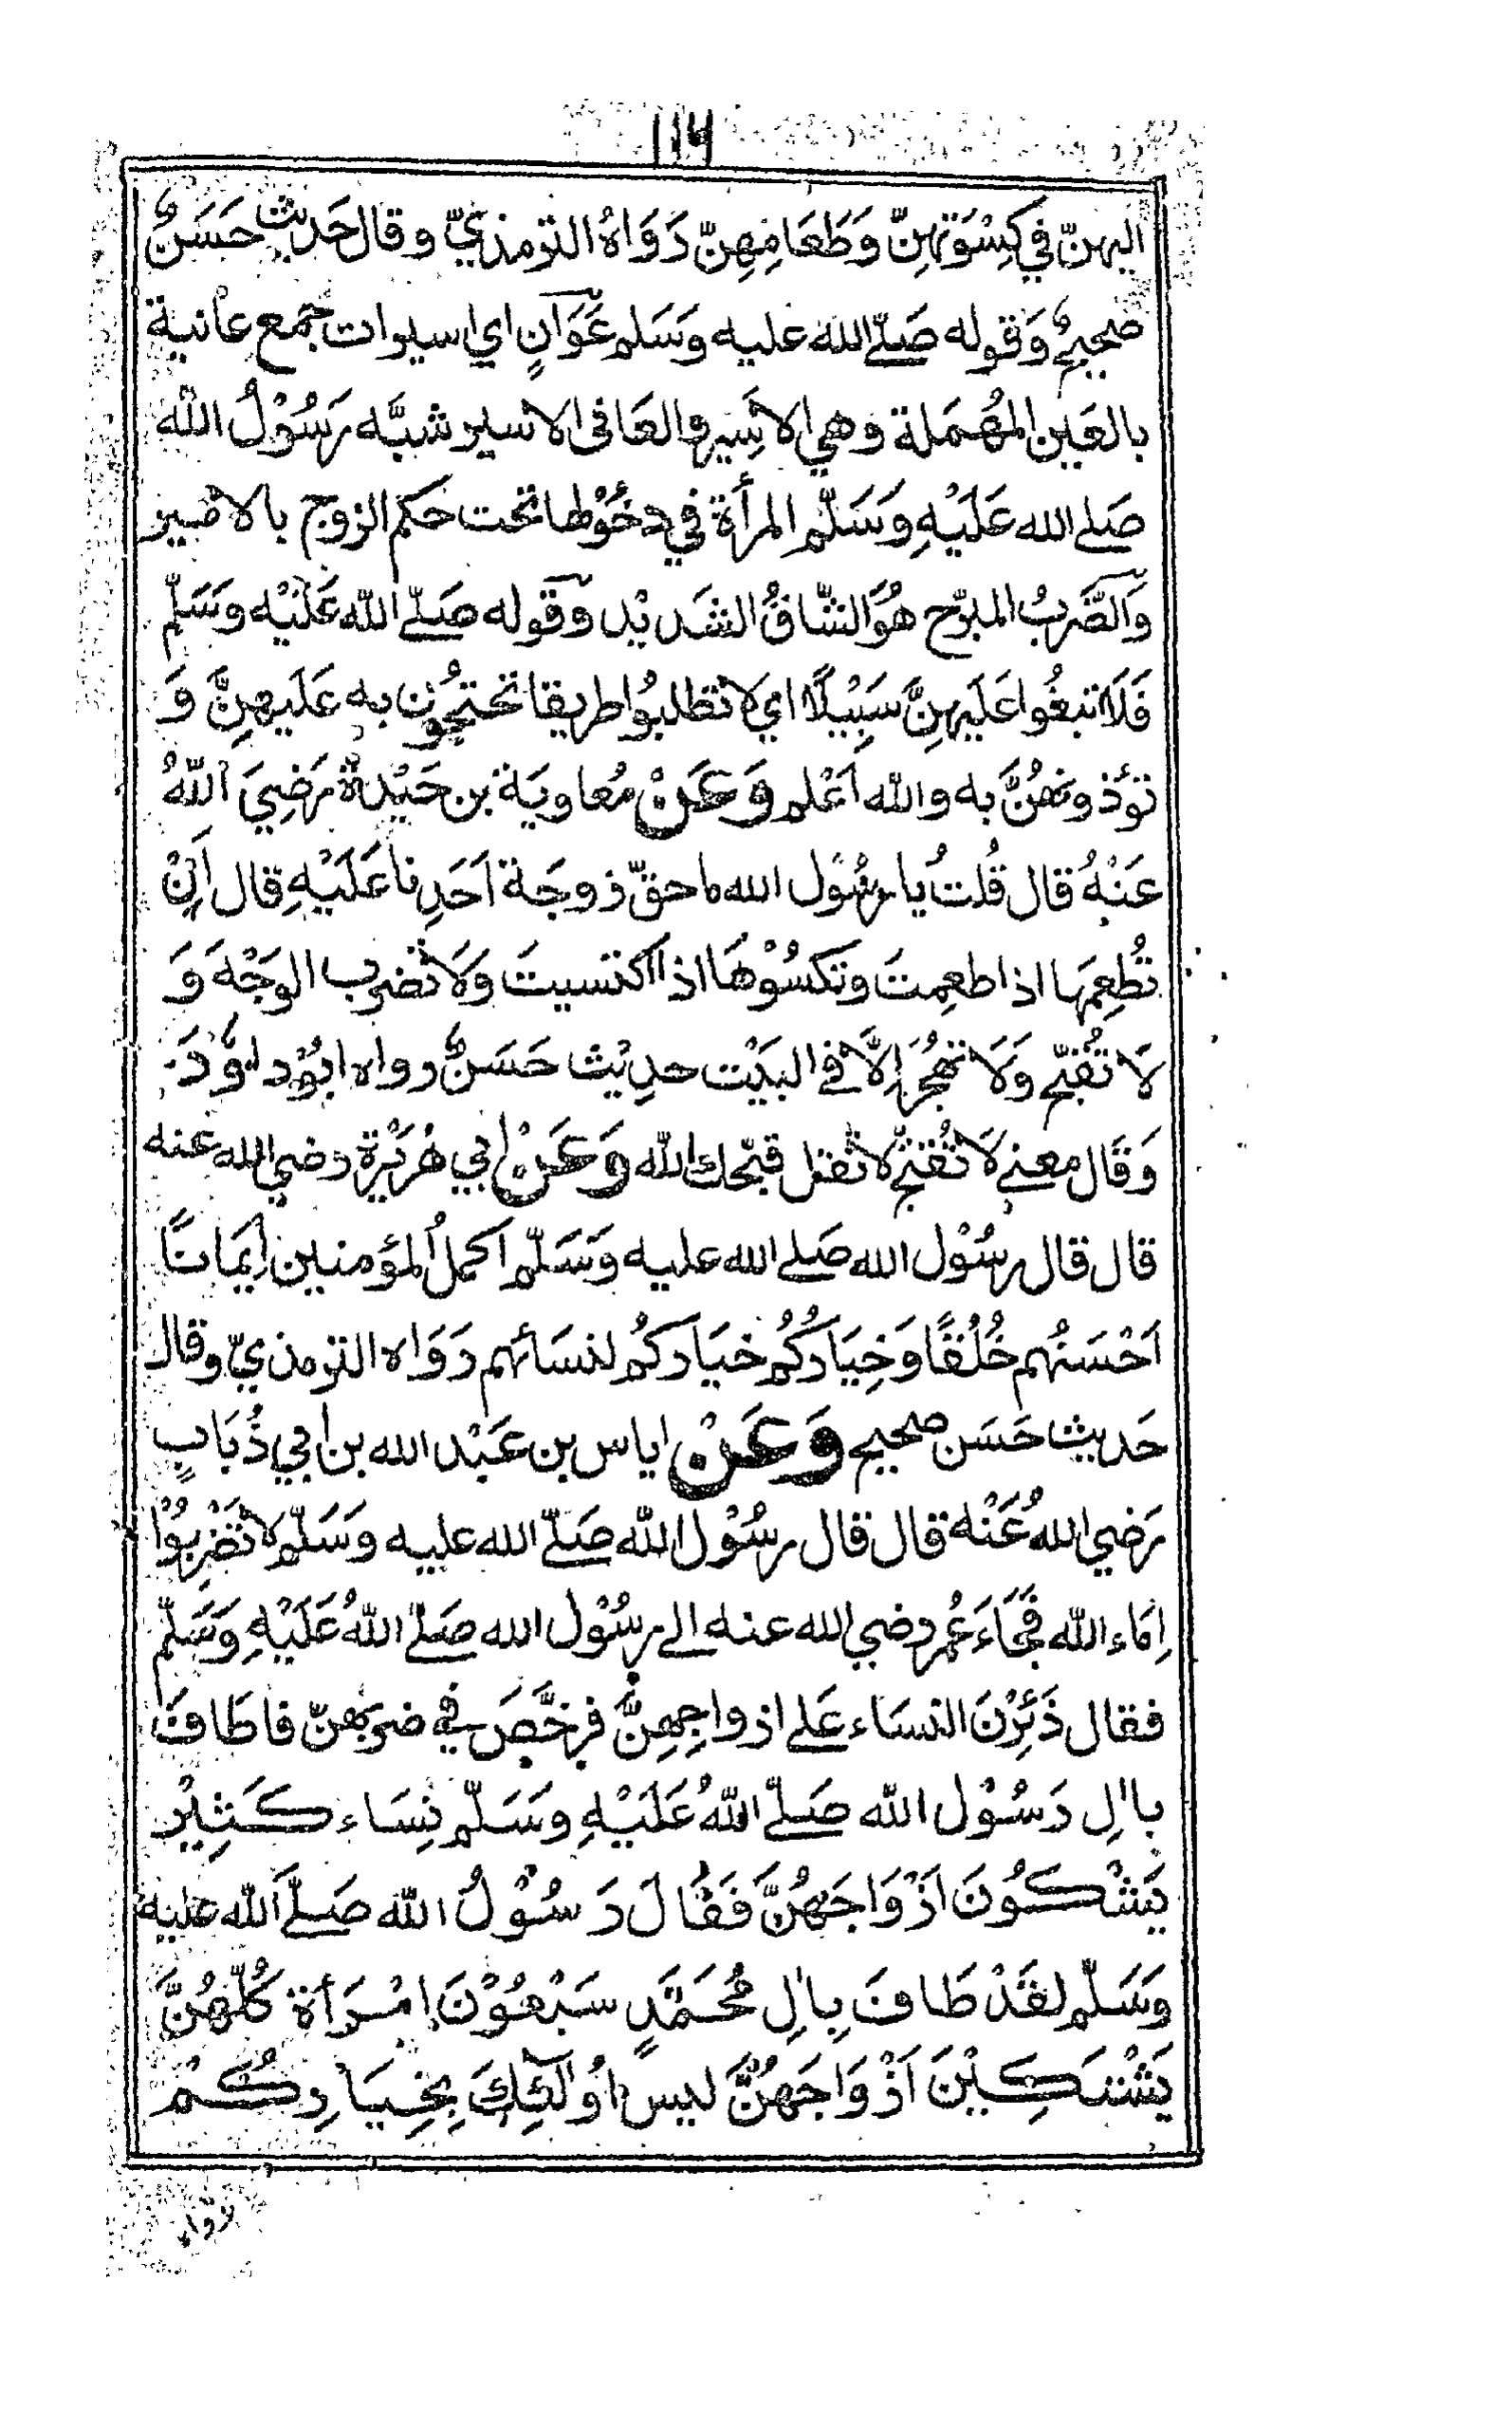 ١١٤
اليهنّ في كِسْوَتهِنّ وَطَعَامِهِنّ رَوَاهُ الترمذيّ وقال حَديث حَسَنٌ
صحيحٌ وَقوله صَلّے الله عليه وَسَلم عَوَانٍ اي اسيرات جمع عانية
بالعَين المُهْمَلة وهي الاسِير والعَانى الاسير شبَّه رَسُوْلُ الله
صَلے الله عَلَيْهِ وَسَلّم المرأة في دخُوْلها تحت حكم الزوج بالاسير
وَالضَّربُ المبرّح هُوَ الشّاقُ الشديْد وقوله صَلّے الله عَلَيْه وَسَلّم
فَلَا تبغُوا عَلَيهِنَّ سَبِيْلًا اي لا تطلبُوا طريقا تحتجُّون به عَلَيهِنَّ وَ
تؤذونهُنَّ به والله اَعْلم وَعَنْ مُعاويَة بن حَيْدة رَضِيَ اللهُ
عَنْهُ قال قُلتُ يا رسُوْل الله ما حقّ زوجَة اَحَدِنا عَلَيْهِ قال اَنْ
تُطعِمَها اذا طعِمتَ وتكسُوْهَا اذا اكتسيتَ وَلا تضرب الوجْهَ وَ
لَا تُقبّح وَلَا تهجُرْ اِلَّا فے البَيْت حدِيْث حَسَنٌ رواه ابُوْداوُدَ
وَقَال معنے لَا تُقبّح لا تقل قبّحك الله وَعَنْ ابي هُرَيْرة رضي الله عنه
قال قال رسُوْل الله صَلے الله عليه وَسَلّم اكملُ المؤمنين اِيمَانًا
اَحْسَنُهم خُلُقًا وَخِيَارُكُم خيَاركُم لنسَائهم رَوَاه الترمذيّ وقال
حَديث حَسَن صحيح وَعَنْ اياس بن عَبْد الله بن ابي ذُبَابٍ
رَضي اللهُ عَنْه قال قال رسُوْل الله صَلّے الله عليه وَسَلّم لا تَضْرِبُوْا
اِمَاء الله فجَاءَ عُمر رضي الله عنه الے رسُوْل الله صَلّے اللهُ عَلَيْهِ وَسَلّم
فقال ذَئِرْنَ النسَاء عَلے ازواجِهِنَّ فرخَّصَ فے ضربهنّ فاطَافَ
باٰلِ رَسُوْل الله صَلّے اللهُ عَلَيْهِ وسَلّم نِسَاء كَثِيْر
يَشْكُونَ اَزْوَاجَهُنَّ فَقَالَ رَسُوْلُ الله صَلّے الله عليه
وَسَلّم لقَدْ طَافَ بِاٰلِ مُحَمَّدٍ سَبْعُوْنَ امْرَأة كُلّهُنَّ
يَشْتَكِيْنَ اَزْوَاجَهُنَّ ليس اوُلٰئِكَ بِخِيَارِكُمْ
رواه